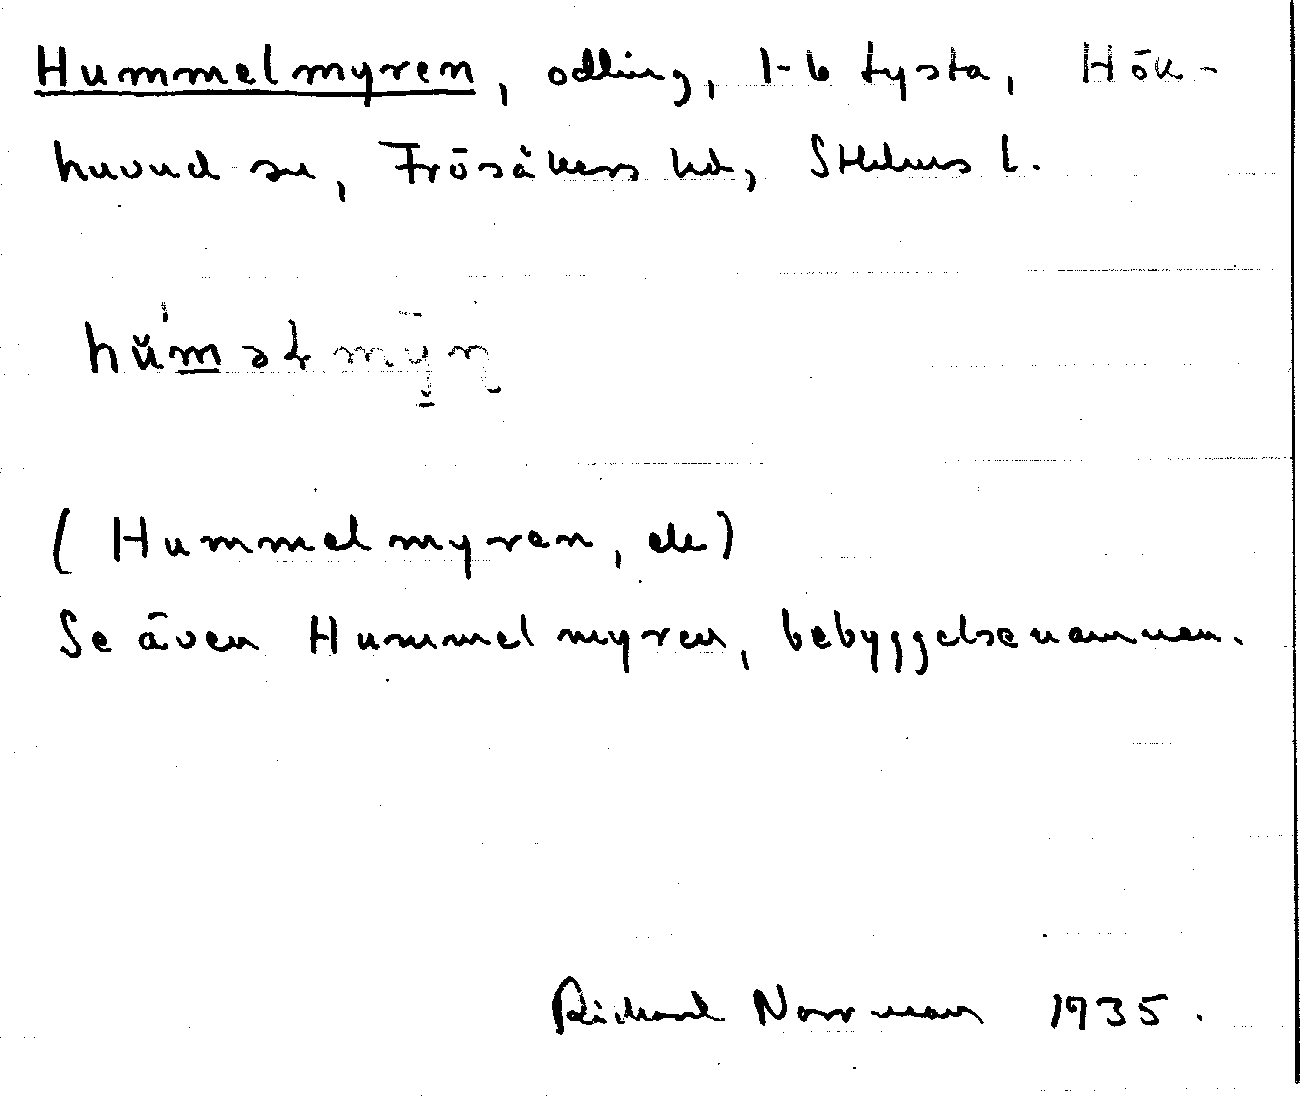 Hummelmyren, odling, 1-6 Lysta, Hök-
huvud sn, Frösåkers hd, Sthlms l.
(Hummelmyren, ek)
Se även Hummelmyren, bebyggelsenamnen.
Richard Norrman 1935.